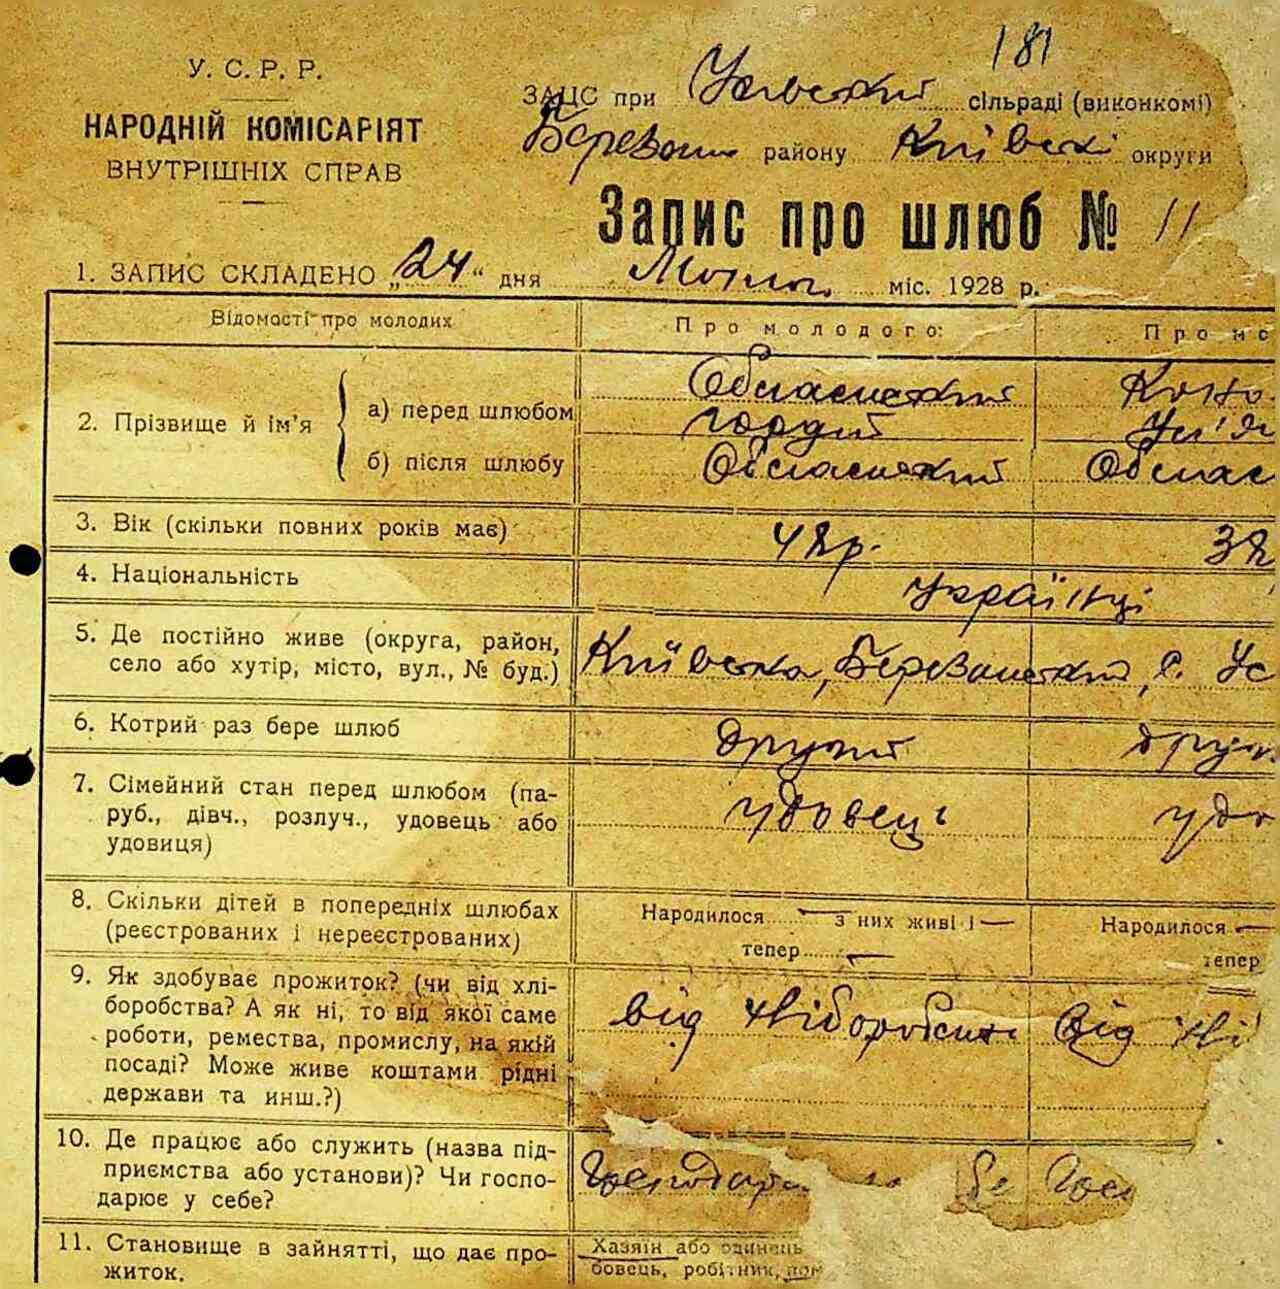 181
У. С. Р. Р.
НАРОДНІЙ КОМІСАРІЯТ
ВНУТРІШНІХ СПРАВ
ЗАЦС при сільраді (виконкомі)
району Київськ округи
Запис про шлюб № 11
1. ЗАПИС СКЛАДЕНО „24“ дня міс. 1928 р.
Відомості про молодих
Про молодого:
Про мо
2. Прізвище й ім'я
а) перед шлюбом
Гордій
б) після шлюбу
3. Вік (скільки повних років має)
48р.
38
4. Національність
Українці
5. Де постійно живе (округа, район,
село або хутір, місто, вул., № буд.)
Київська, Березанський, с. Ус
6. Котрий раз бере шлюб
другий
друг
7. Сімейний стан перед шлюбом (па-
руб., дівч., розлуч., удовець або
удовиця)
удовець
удо
8. Скільки дітей в попередніх шлюбах
(реєстрованих і нереєстрованих)
Народилося — з них живі і —
тепер —
Народилося —
тепер
9. Як здобуває прожиток? (чи від хлі-
боробства? А як ні, то від якої саме
роботи, ремества, промислу, на якій
посаді? Може живе коштами рідні
держави та инш.?)
від хліборобства
від хлі
10. Де працює або служить (назва під-
приємства або установи)? Чи госпо-
дарює у себе?
Господарю бе
Гос
11. Становище в зайнятті, що дає про-
житок.
Хазяїн або одинець
бовець, робітник, пом